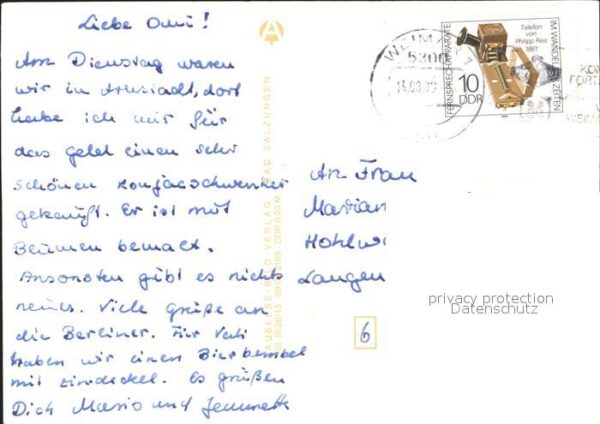 Liebe Omi!
Am Dienstag waren
wir in Arnstadt, dort
habe ich mir für
das Geld einen sehr
schönen Kognacschwenker
gekauft. Er ist mit
Blumen bemalt.
Ansonsten gibt es nichts
neues. Viele Grüße an
die Berliner. Für Vati
haben wir einen Bierbembel
mit Zinndeckel. Es grüßen
Dich Mario und Jeannette
AUSLESE-BILD-VERLAG BAD SALZUNGEN
WEIM
5300
FERNSPRECHAPPARATE
IM WANDEL DER ZEITEN
Telefon
von
Philipp Reis
1861
10
DDR
WEIMA
An Frau
Marian
Hohlw
Langen
6
privacy protection
Datenschutz